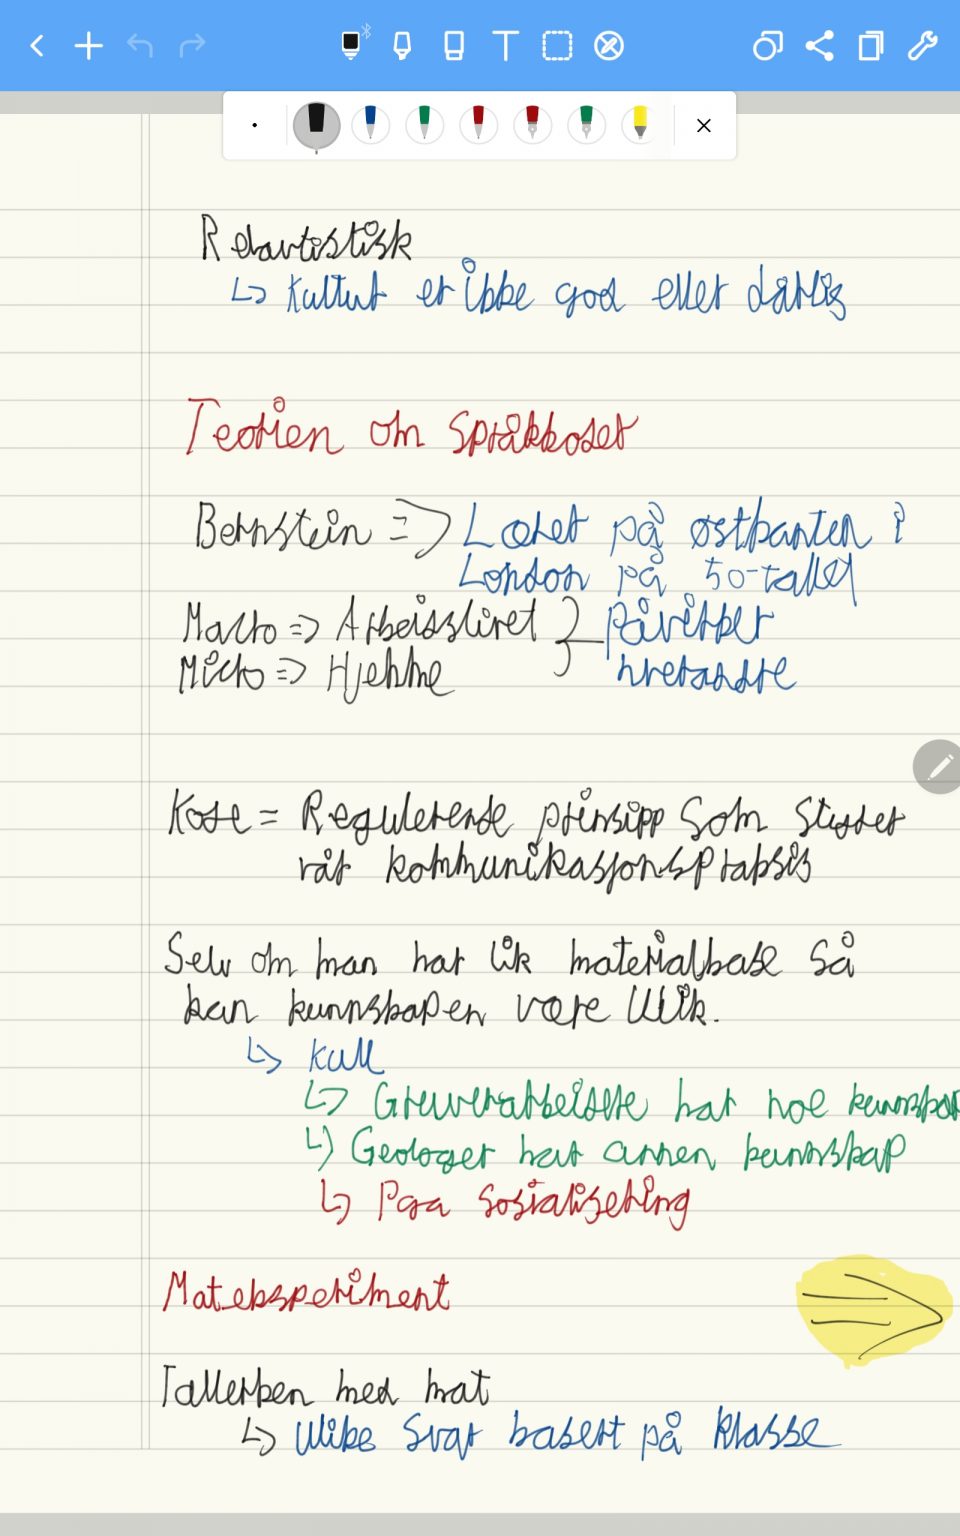 Relavtistisk
↳ Kultur er ikke god eller dårlig
Teorien om språkkoder
Bernstein => Lærer på østkanten i
London på 50-tallet
Makro => Arbeidslivet } påvirker
Mikro => Hjemme hverandre
Kode = Regulerende prinsipp som styrer
vår kommunikasjonspraksis
Selv om man har lik materialbase så
kan kunnskapen være ulik.
↳ Kull
↳ Gruverarbeidere har noe kunnskap
↳ Geologer har annen kunnskap
↳ Pga sosialisering
Mateksperiment
Tallerken med mat
↳ Ulike svar basert på klasse